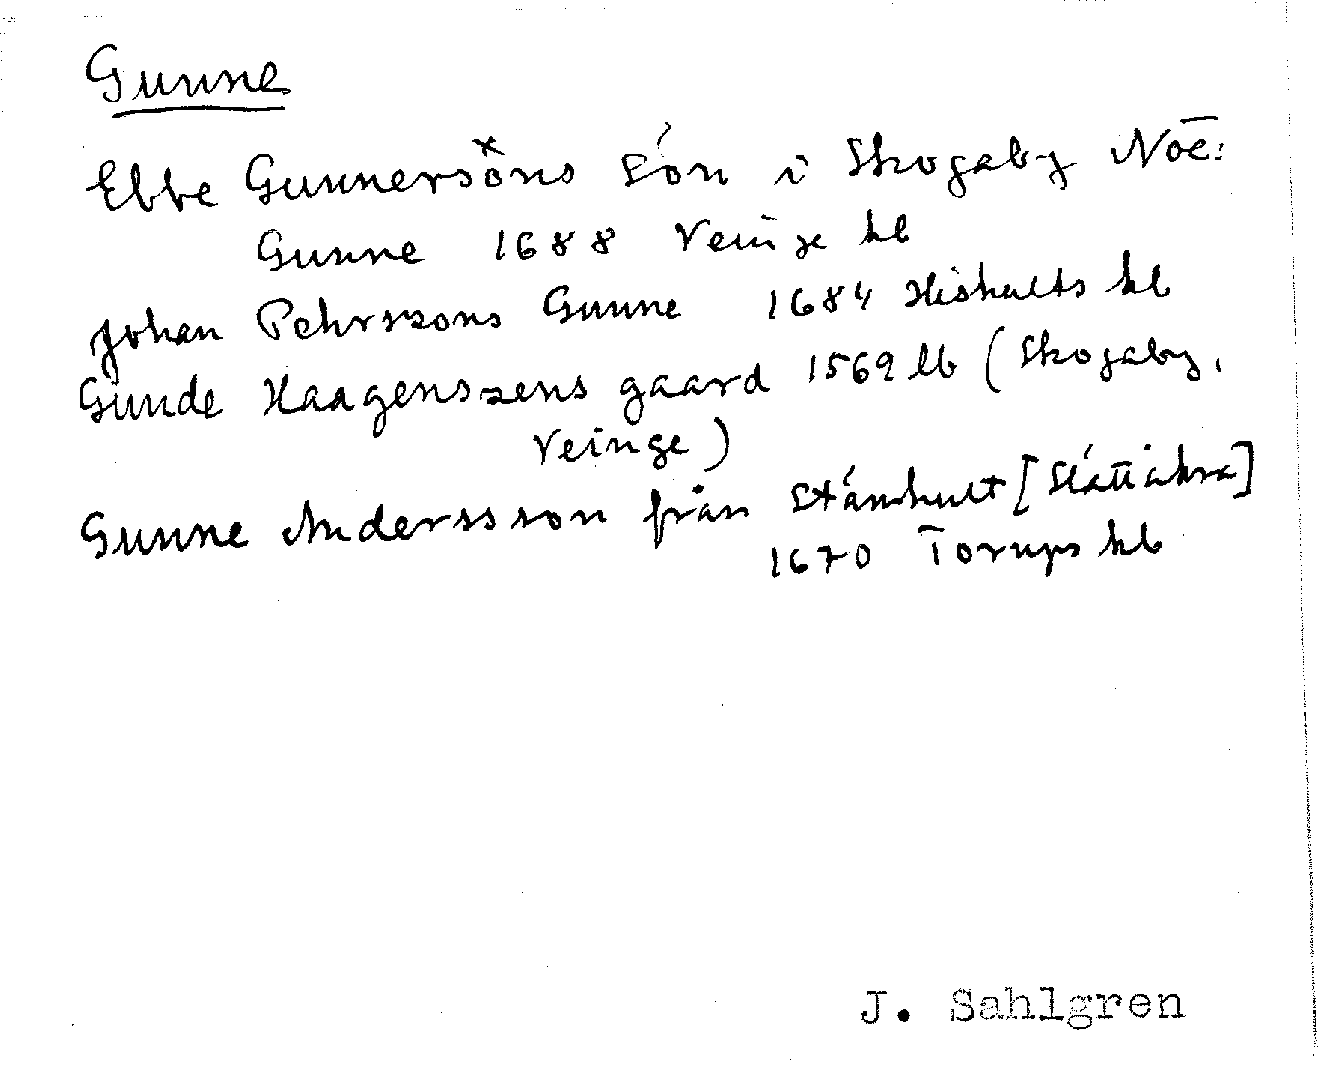 Gunne
Ebbe Gunnersöns Són i Skogaby Noē:
Gunne 1688 Veinge kb
Johan Pehrssons Gunne 1684 Hishults kb
Gunde Haagenszens gaard 1569 lb (Skogaby,
Veinge)
Gunne Anderssson från Stámhult [Slättåkra]
1670 Torups kb
J. Sahlgren